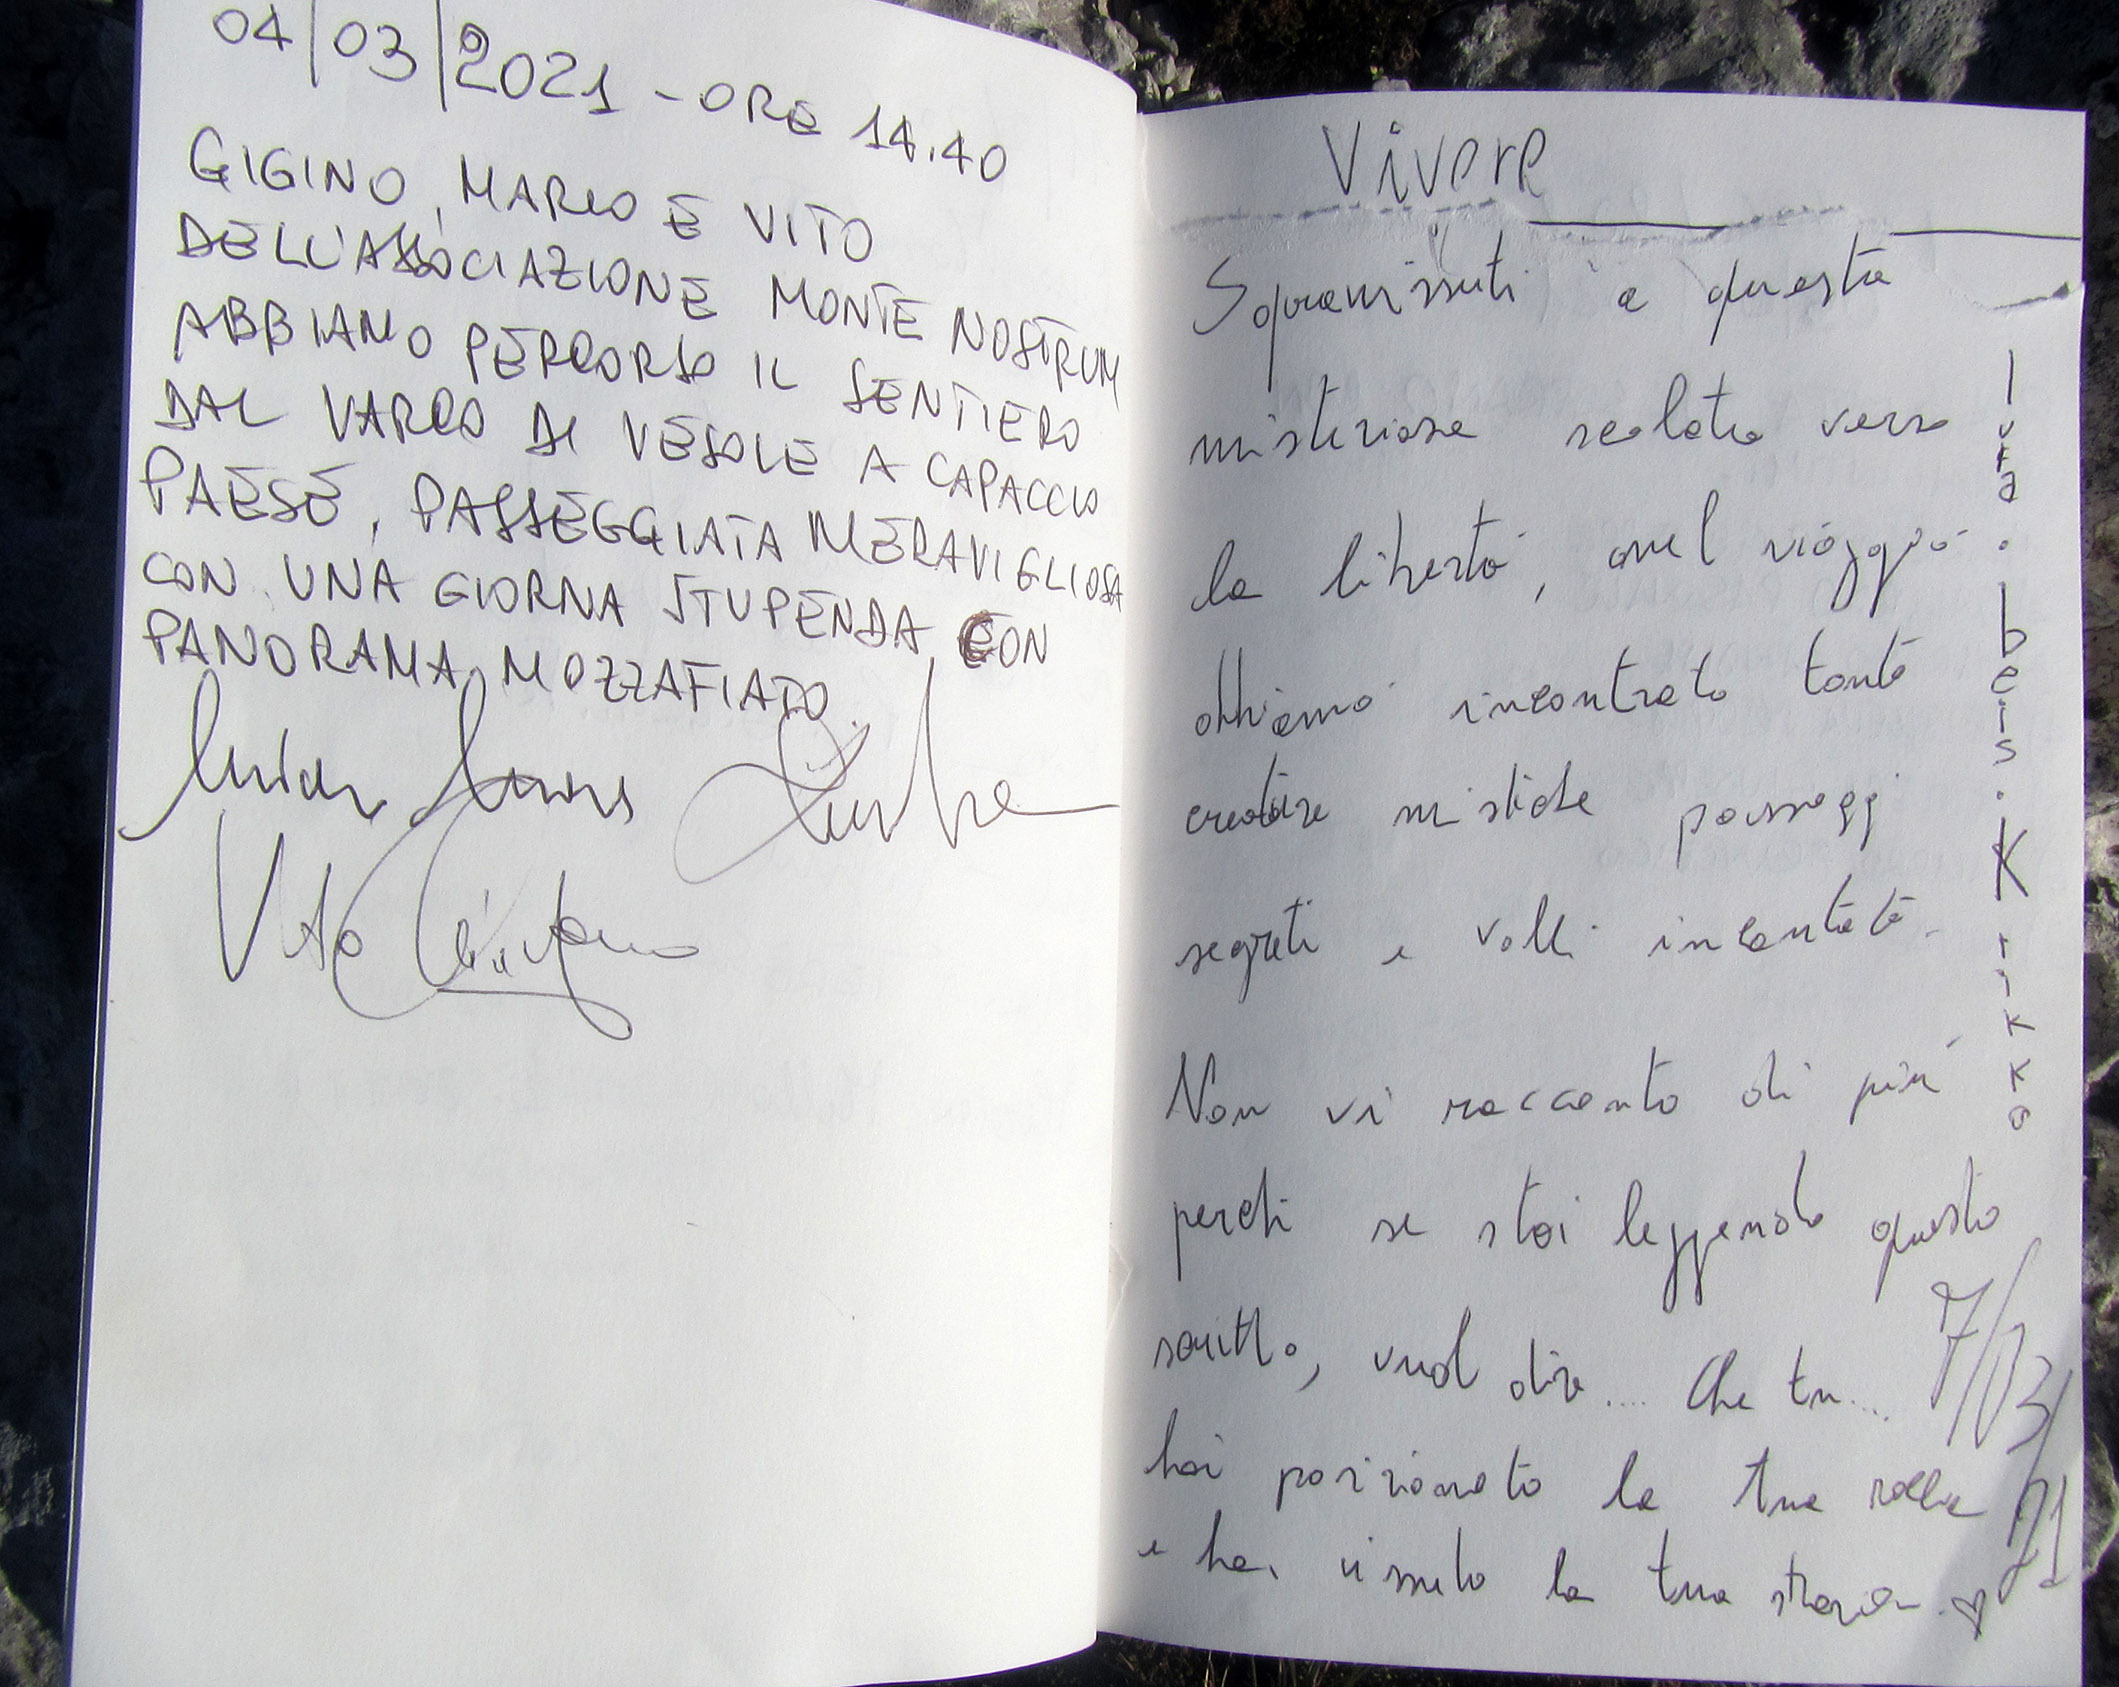 04/03/2021 - ORE 14.40
GIGINO, MARCO E VITO
DELL'ASSOCIAZIONE MONTE NOSTRUM
ABBIAMO PERCORSO IL SENTIERO
DAL VARCO DI VESOLE A CAPACCIO
PAESE, PASSEGGIATA MERAVIGLIOSA
CON UNA GIORNA STUPENDA CON
PANORAMA MOZZAFIATO.
Vito
Vivere
Sopravvissuti a questa
misteriosa scalata verso
la libertà, nel viaggio
abbiamo incontrato tante
creature mistiche passaggi
segreti e valli incantate.
Non vi racconto di più
perché se stai leggendo questo
scritto, vuol dire.... Che tu....
hai posizionato la tua
e hai vissuto la tua storia ♡
7/03/21